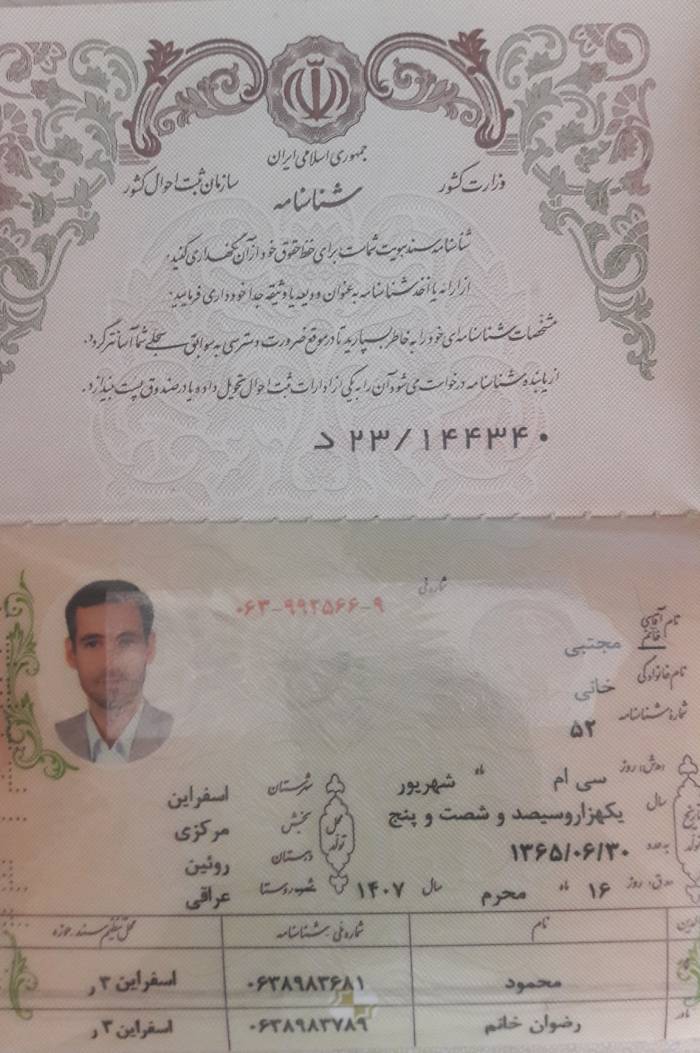 جمهوری اسلامی ایران
وزارت کشور
سازمان ثبت احوال کشور
شناسنامه
شناسنامه سند هویت شماست برای حفظ حقوق خود از آن نگهداری کنید.
از ارائه یا اخذ شناسنامه به عنوان ودیعه یا وثیقه جدا خودداری فرمایید.
مشخصات شناسنامه‌ای خود را به خاطر بسپارید تا در موقع ضرورت دسترسی به سوابق سجلی شما آسانتر گردد.
از یابنده شناسنامه درخواست می شود آن را به یکی از ادارات ثبت احوال تحویل داده یا در صندوق پست بیندازد.
د ۲۳/۱۴۴۳۴۰
شماره ملی
۰۶۳-۹۹۲۵۶۶-۹
نام آقای خانم مجتبی
نام خانوادگی خانی
شماره شناسنامه ۵۲
روز سی ام ماه شهریور
سال یکهزاروسیصد و شصت و پنج
به عدد ۱۳۶۵/۰۶/۳۰
روز ۱۶ ماه محرم سال ۱۴۰۷
تاریخ تولد
محل تولد
شهرستان اسفراین
بخش مرکزی
دهستان روئین
شهر روستا عراقی
نام شماره ملی شناسنامه محل تنظیم سند حوزه
محمود ۰۶۳۸۹۸۳۶۸۱ اسفراین ۳ ر
مادر رضوان خانم ۰۶۳۸۹۸۳۷۸۹ اسفراین ۳ ر